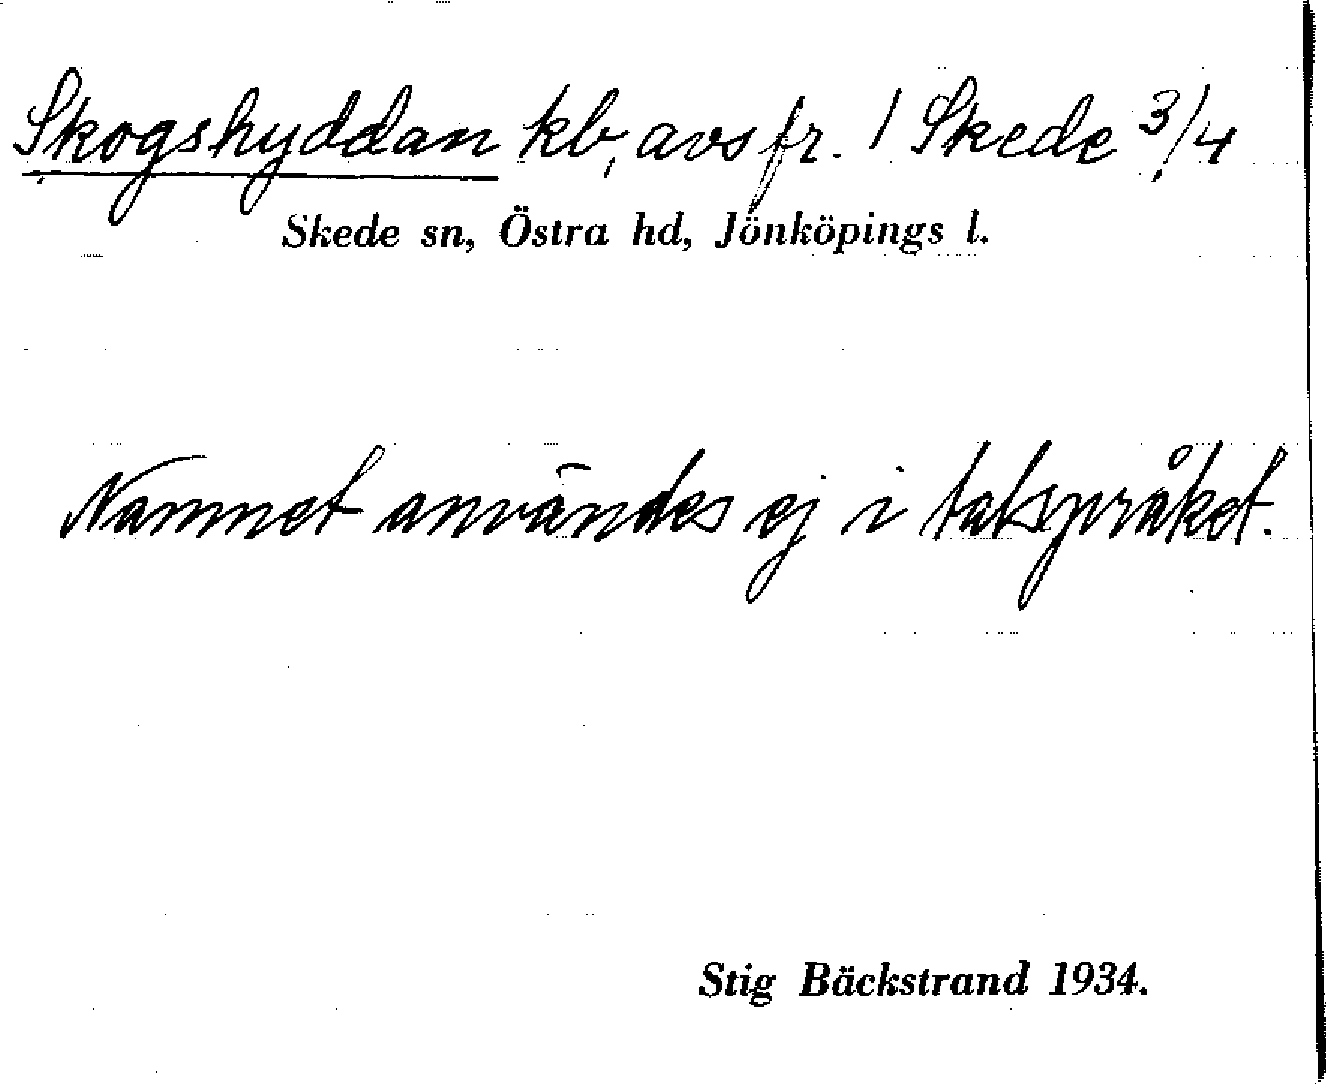 Skogshyddan kb, avs fr. 1 Skede 3/4
Skede sn, Östra hd, Jönköpings l.
Namnet användes ej i talspråket.
Stig Bäckstrand 1934.